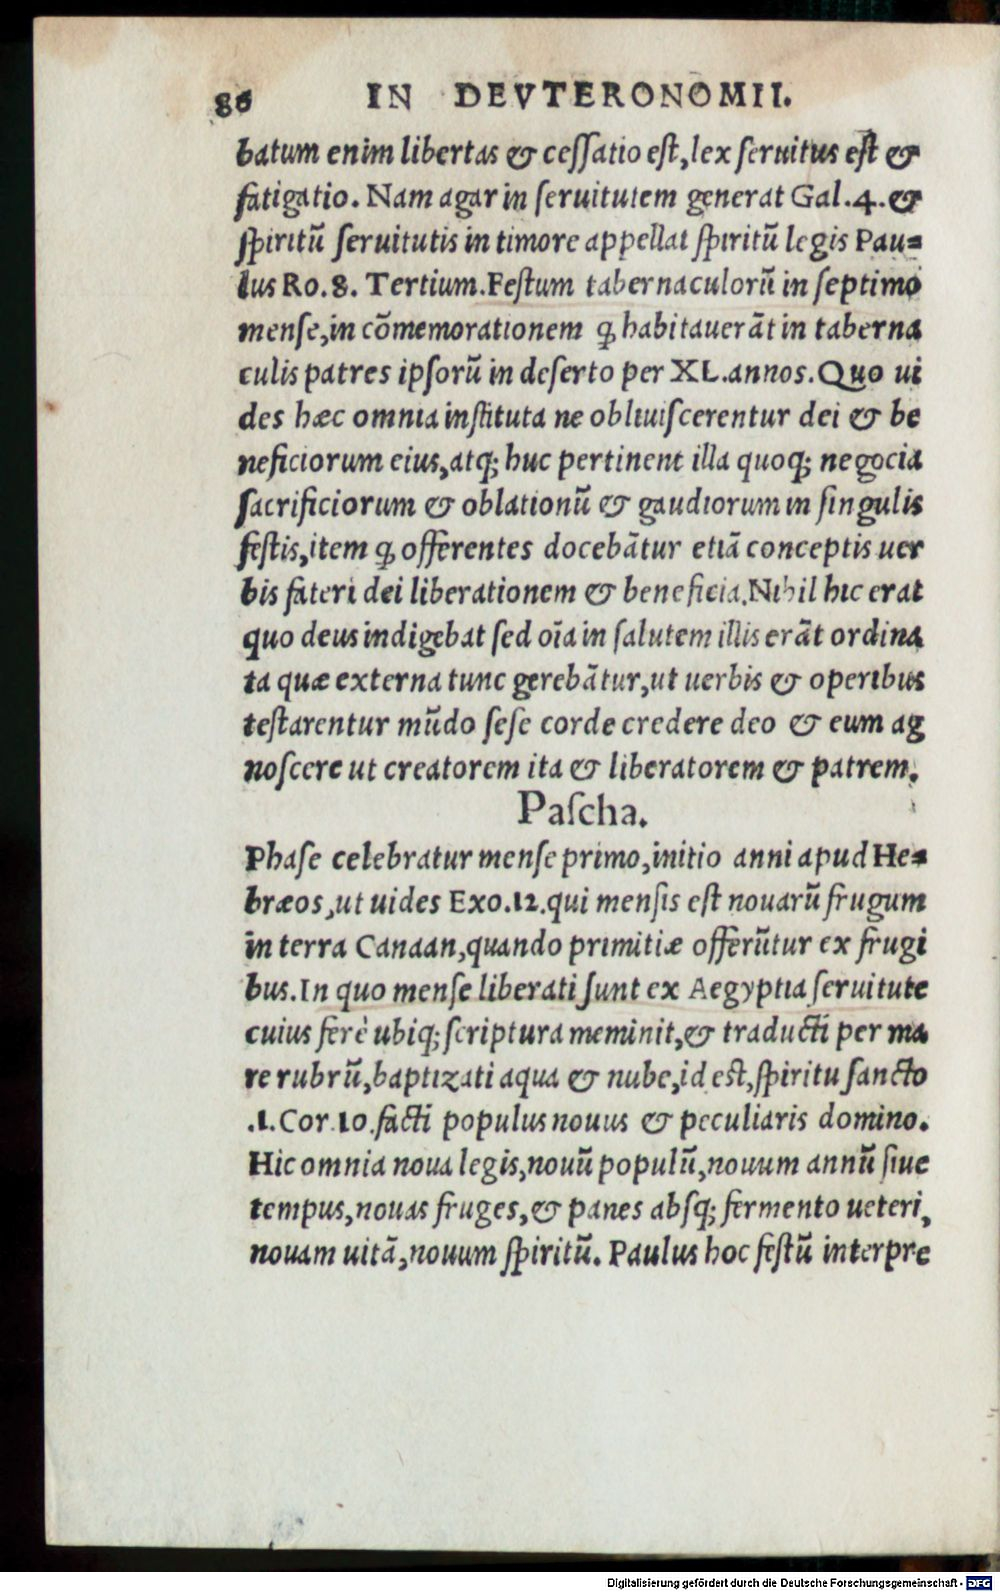 86 IN DEVTERONOMII.
batum enim libertas & ceſſatio eſt, lex ſeruitus eſt &
fatigatio. Nam agar in ſeruitutem generat Gal. 4. &
ſpiritū ſeruitutis in timore appellat ſpiritū legis Pau⸗
lus Ro. 8. Tertium. Feſtum tabernaculorū in ſeptimo
menſe, in cōmemorationem ꝙ habitauerāt in taberna
culis patres ipſorū in deſerto per XL. annos. Quo ui
des hæc omnia inſtituta ne obliuiſcerentur dei & be
neficiorum eius, atq; huc pertinent illa quoq; negocia
ſacrificiorum & oblationū & gaudiorum in ſingulis
feſtis, item ꝙ offerentes docebātur etiā conceptis uer
bis fateri dei liberationem & beneficia. Nihil hic erat
quo deus indigebat ſed oīa in ſalutem illis erāt ordina
ta quæ externa tunc gerebātur, ut uerbis & operibus
teſtarentur mūdo ſeſe corde credere deo & eum ag
noſcere ut creatorem ita & liberatorem & patrem.
Paſcha.
Phaſe celebratur menſe primo, initio anni apud He⸗
bræos, ut uides Exo. 12. qui menſis eſt nouarū frugum
in terra Canaan, quando primitiæ offerūtur ex frugi
bus. In quo menſe liberati ſunt ex Aegyptia ſeruitute
cuius ferè ubiq; ſcriptura meminit, & traducti per ma
re rubrū, baptizati aqua & nube, id eſt, ſpiritu ſancto
.1. Cor. 10. facti populus nouus & peculiaris domino.
Hic omnia noua legis, nouū populū, nouum annū ſiue
tempus, nouas fruges, & panes absq; fermento ueteri,
nouam uitā, nouum ſpiritū. Paulus hoc feſtū interpre
Digitalisierung gefördert durch die Deutsche Forschungsgemeinschaft - DFG